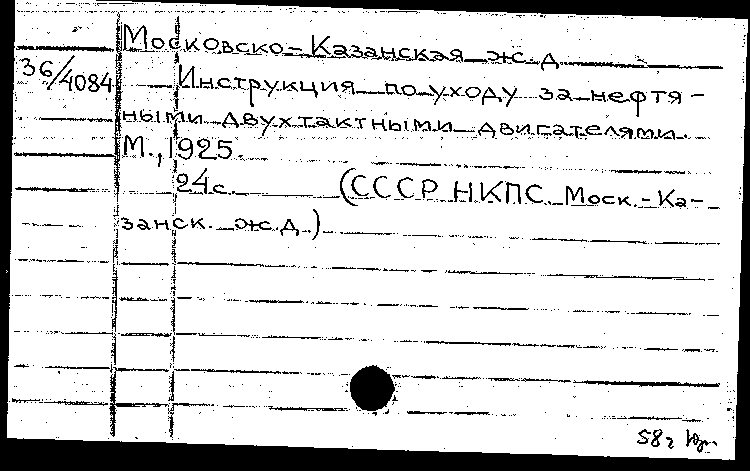 Московско-Казанская ж.д
36/4084 Инструкция по уходу за нефтя-
ными двухтактными двигателями.
М., 1925.
24с. (СССР НКПС. Моск.-Ка-
занск. ж.д.)
58г